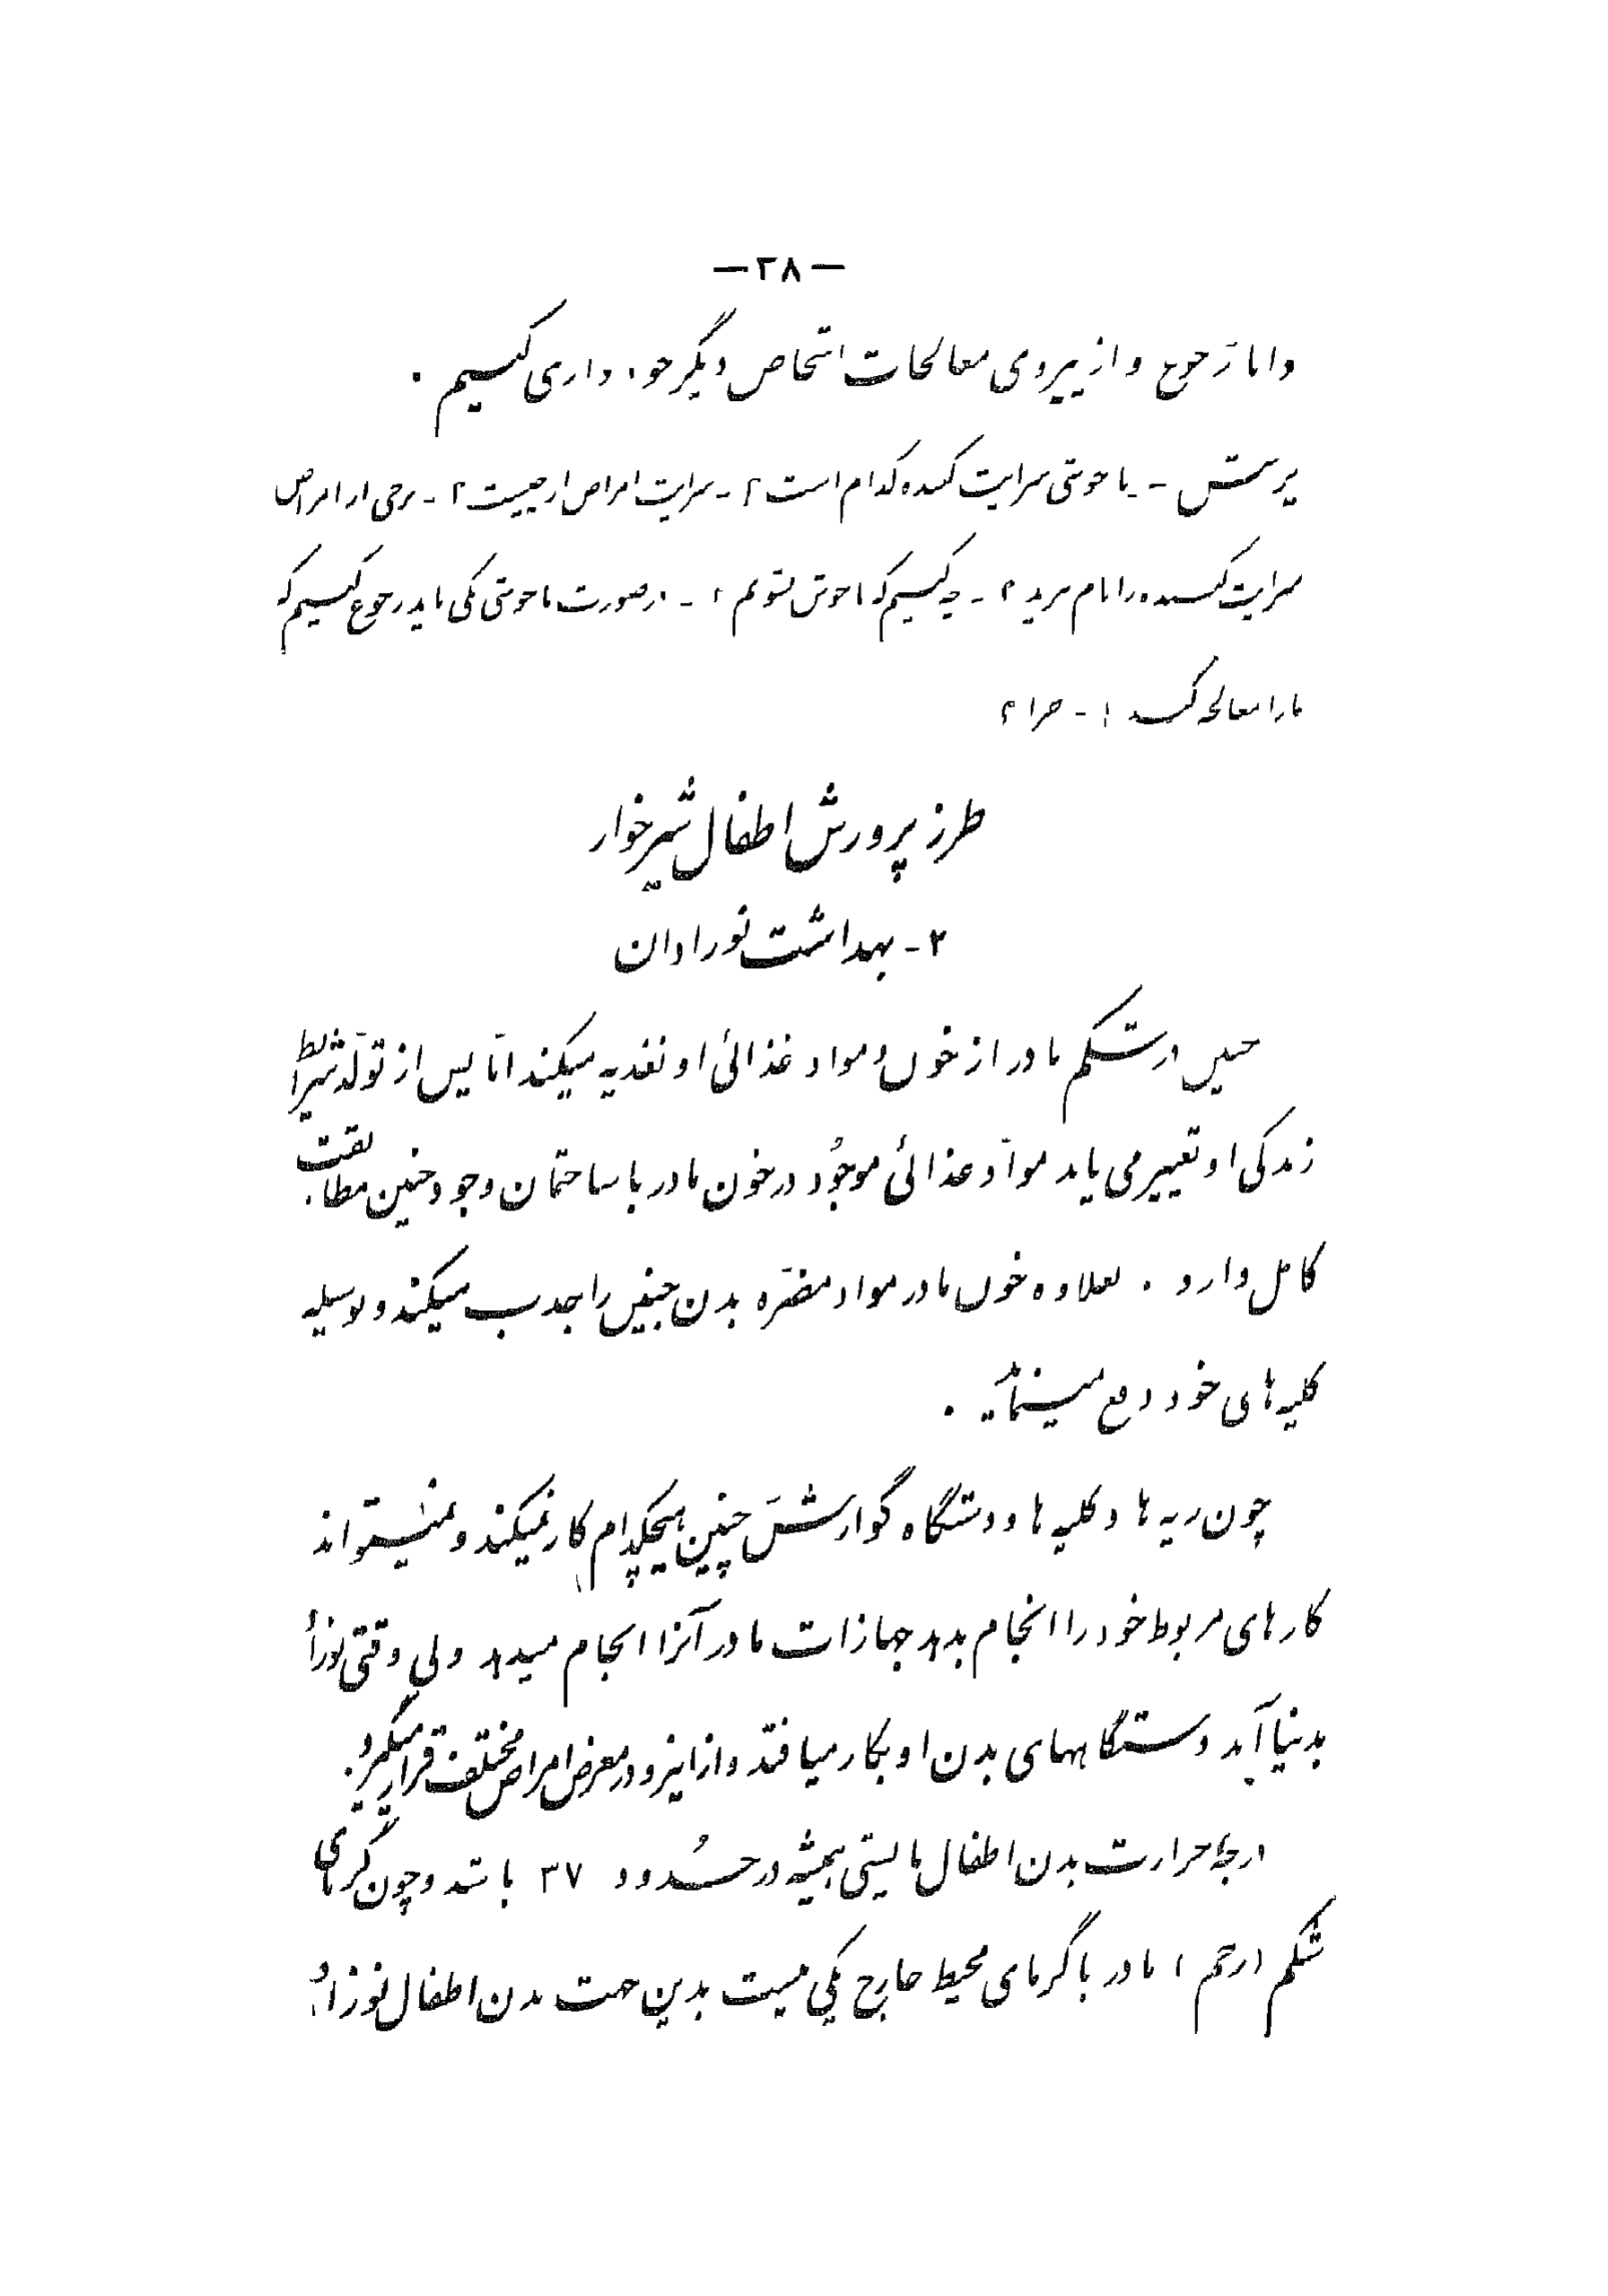 — ۲۸ —
دانا رجوع و از پیروی معالجات اشخاص دیگر خودداری کنیم .
پرسش - ناخوشی سرایت کننده کدام است ؟ - سرایت امراض از چیست ؟ - برخی از امراض
سرایت کننده را نام ببرید ؟ - چه کنیم که ناخوش نشویم ؟ - در صورت ناخوشی بکی باید رجوع کنیم که
ما را معالجه کند ؟ - چرا ؟
طرز پرورش اطفال شیرخوار
۲ - بهداشت نوزادان
جنین در شکم مادر از خون و مواد غذائی او تغذیه میکند امّا پس از تولّد شرایط
زندگی او تغییر می یابد موادّ غذائی موجُود در خون مادر با ساختمان وجود جنین مطابقت
کامل دارد . بعلاوه خون مادر مواد مضرّه بدن جنین را جذب میکند و بوسیله
کلیه های خود دفع مینماید .
چون ریه ها و کلیه ها و دستگاه گوارش جنین هیچکدام کار نمیکند و نمیتواند
کارهای مربوط خود را انجام بدهد جهازات مادر آنرا انجام میدهد ولی وقتی نوزاد
بدنیا آید دستگاههای بدن او بکار میافتد و از اینرو در معرض امراض مختلف قرار میگیرد .
درجه حرارت بدن اطفال بایستی همیشه در حدُود ۳۷ باشد و چون گرمای
شکم ( رحم ) مادر با گرمای محیط خارج یکی نیست بدین جهت بدن اطفال نوزاد